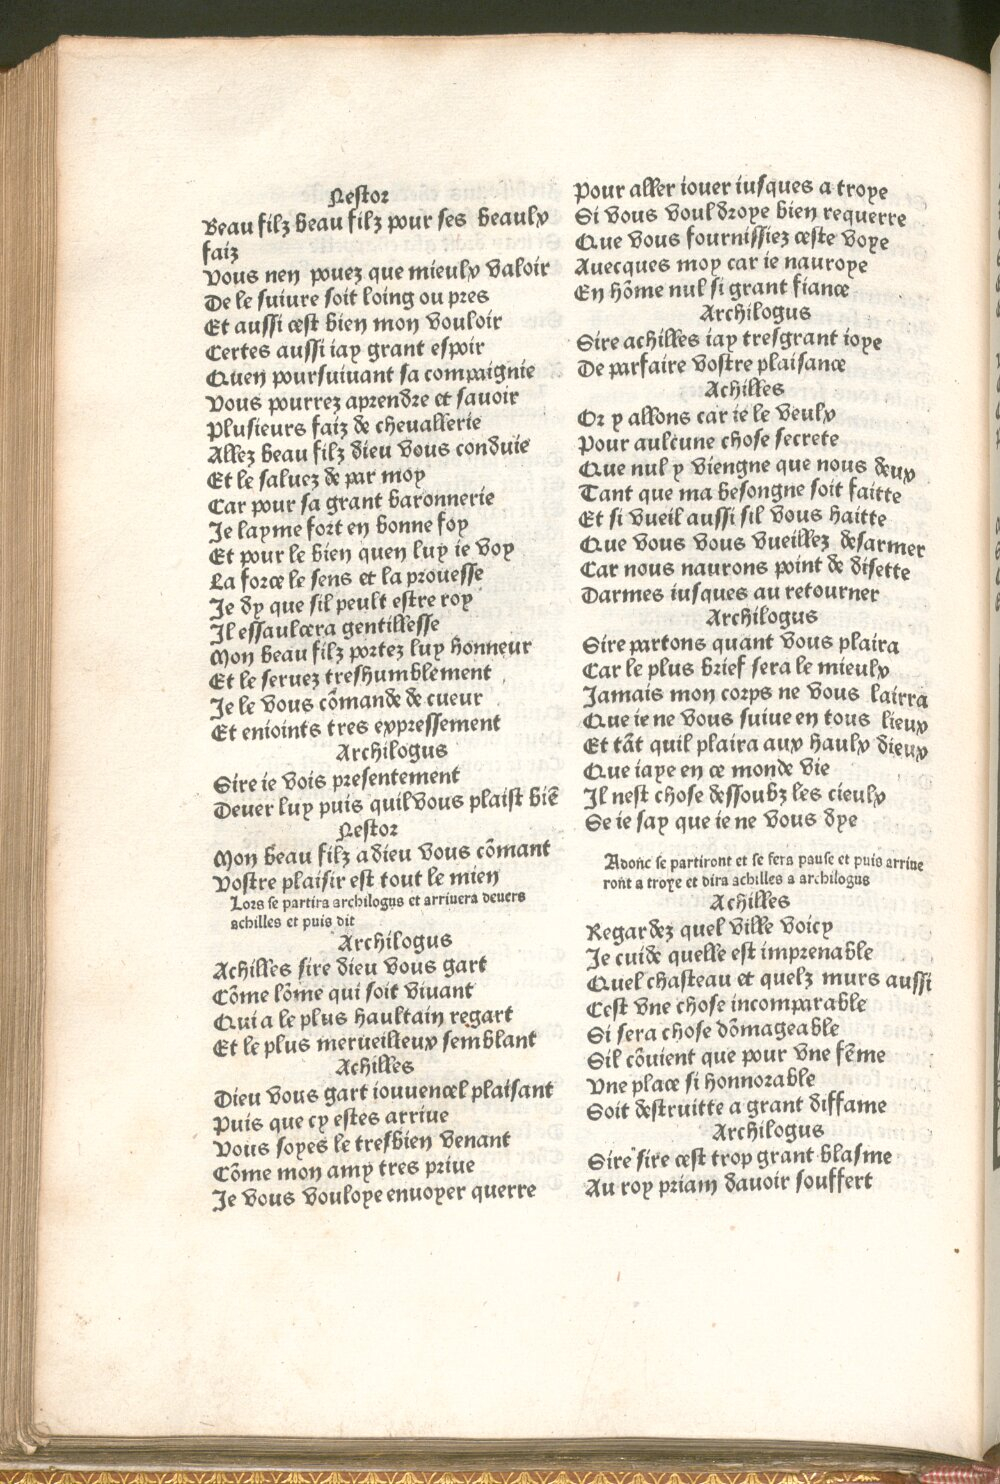 Nestor
Beau filz beau filz pour ses beaulx
faiz
Vous nen pouez que mieulx valoir
De le suiure soit loing ou pres
Et aussi cest bien mon vouloir
Certes aussi iay grant espoir
Quen poursuiuant sa compaignie
Vous pourrez aprendre et sauoir
Plusieurs faiz de cheuallerie
Allez beau filz dieu vous conduie
Et le saluez de par moy
Car pour sa grant baronnerie
Je layme fort en bonne foy
Et pour le bien quen luy ie voy
La force le sens et la prouesse
Je dy que sil peult estre roy
Il essaulcera gentillesse
Mon beau filz portez luy honneur
Et le seruez treshumblement
Je le vous cōmande de cueur
Et enioints tres expressement
Archilogus
Sire ie vois presentement
Deuer luy puis quil vous plaist biē
Nestor
Mon beau filz a dieu vous cōmant
Vostre plaisir est tout le mien
Lors se partira archilogus et arriuera deuers
achilles et puis dit
Archilogus
Achilles sire dieu vous gart
Cōme lōme qui soit viuant
Qui a le plus haultain regart
Et le plus merueilleux semblant
Achilles
Dieu vous gart iouuencel plaisant
Puis que cy estes arriue
Vous soyes le tresbien venant
Cōme mon amy tres priue
Je vous vouloye enuoyer querre
Pour aller iouer iusques a troye
Si vous vouldroye bien requerre
Que vous fournissiez ceste voye
Auecques moy car ie nauroye
En hōme nul si grant fiance
Archilogus
Sire achilles iay tresgrant ioye
De parfaire vostre plaisance
Achilles
Or y allons car ie le veulx
Pour aulcune chose secrete
Que nul y viengne que nous deux
Tant que ma besongne soit faitte
Et si vueil aussi sil vous haitte
Que vous vous vueillez desarmer
Car nous naurons point de disette
Darmes iusques au retourner
Archilogus
Sire partons quant vous plaira
Car le plus brief sera le mieulx
Jamais mon corps ne vous lairra
Que ie ne vous suiue en tous lieux
Et tāt quil plaira aux haulx dieux
Que iaye en ce monde vie
Il nest chose dessoubz les cieulx
Se ie say que ie ne vous dye
Adonc se partiront et se fera pause et puis arriue
ront a troye et dira achilles a archilogus
Achilles
Regardez quel ville voicy
Je cuide quelle est imprenable
Quel chasteau et quelz murs aussi
Cest vne chose incomparable
Si sera chose dōmageable
Sil cōuient que pour vne fēme
Vne place si honnorable
Soit destruitte a grant diffame
Archilogus
Sire sire cest trop grant blasme
Au roy priam dauoir souffert